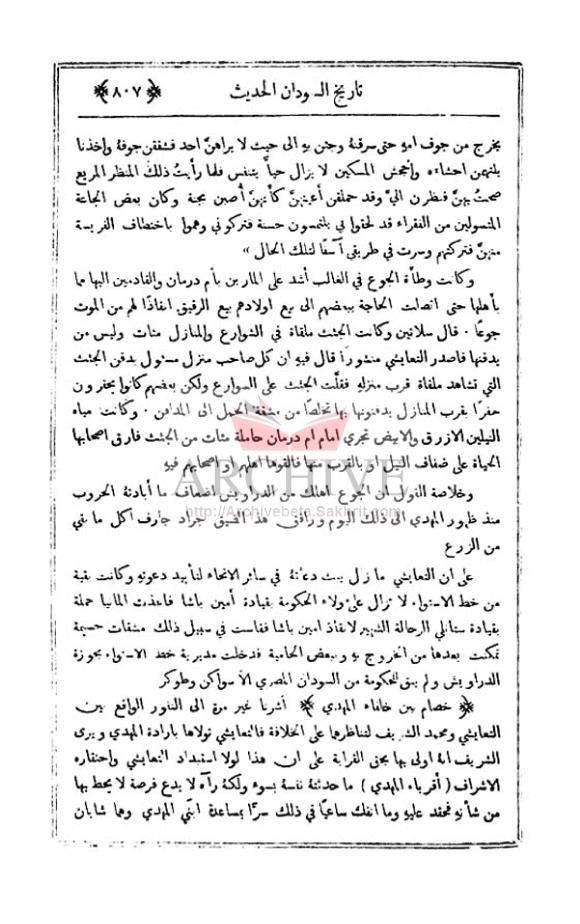 تاريخ السودان الحديث ﴿ ٨٠٧ ﴾
يخرج من جوف امهِ حتى سرقنهُ وجئن بهِ الى حيث لا يراهنَّ احد فشققن جوفهُ واخذنا
يلتهمن احشاءه والجحش المسكين لا يزال حياً يتنفس فلما رأيتُ ذلك المنظر المريع
صحتُ بهنَّ فنظرن اليَّ وقد حملقن أعينهنَّ كأنهنَّ أصبن بجنة وكان بعض الجاعة
المتسولين من الفقراء قد لحقوا بي يلتمسون حسنة فتركوني وهموا باختطاف الفريسة
منهنَّ فتركتهم وسرت في طريقي آسفًا لتلك الحال »
وكانت وطأة الجوع في الغالب أشد على المارين بأم درمان والقادمين اليها مما
بأهلها حتى اتصلت الحاجة ببعضهم الى بيع اولادهم بيع الرقيق انقاذًا لهم من الموت
جوعًا ٠ قال سلاتين وكانت الجثث ملقاة في الشوارع والمنازل مئات وليس من
يدفنها فاصدر التعايشي منشورًا قال فيهِ ان كل صاحب منزل مسئول بدفن الجثث
التي تشاهد ملقاة قرب منزلهِ فقلَّت الجثث على الشوارع ولكن بعضهم كانوا يحفرون
حفرًا بقرب المنازل يدفنونها بها تخلصًا من مشقة الحمل الى المدافن ٠ وكانت مياه
النيلين الازرق والابيض تجري امام ام درمان حاملة مئات من الجثث فارق اصحابها
الحياة على ضفاف النيل او بالقرب منها فالقوها اهلهم او اصحابهم فيهِ
وخلاصة القول ان الجوع اهلك من الدراويش اضعاف ما أبادتهُ الحروب
منذ ظهور المهدي الى ذلك اليوم ورافق هذا الضيق جراد جارف اكل ما بقي
من الزرع
على ان التعايشي ما زل يبث دعاتهُ في سائر الانحاء لتأييد دعوتهِ وكانت بقية
من خط الاستواء لا تزال على ولاء الحكومة بقيادة أمين باشا فانفذت المانيا حملة
بقيادة ستانلي الرحالة الشهير لانقاذ امين باشا فقاست في سبيل ذلك مشقات جسيمة
تمكنت بعدها من الخروج بهِ وببعض الحامية فدخلت مديرية خط الاستواء بحوزة
الدراويش ولم يبق للحكومة من السودان المصري الا سواكن وطوكر
﴿ خصام بين خلفاء المهدي ﴾ أشرنا غير مرة الى النفور الواقع بين
التعايشي ومحمد الشريف لتناظرهما على الخلافة فالتعايشي تولاها بارادة المهدي ويرى
الشريف انهُ اولى بها بحق القرابة على ان هذا لولا استبداد التعايشي واحتقاره
الاشراف ( أقرباء المهدي ) ما حدثتهُ نفسهُ بسوء ولكنهُ رآه لا يدع فرصة لا يحط بها
من شأنهِ فحقد عليهِ وما انفك ساعيًا في ذلك سرًّا بمساعدة ابنَي المهدي وهما شابان
ARCHIVE
http://Archivebeta.Sakhrit.com